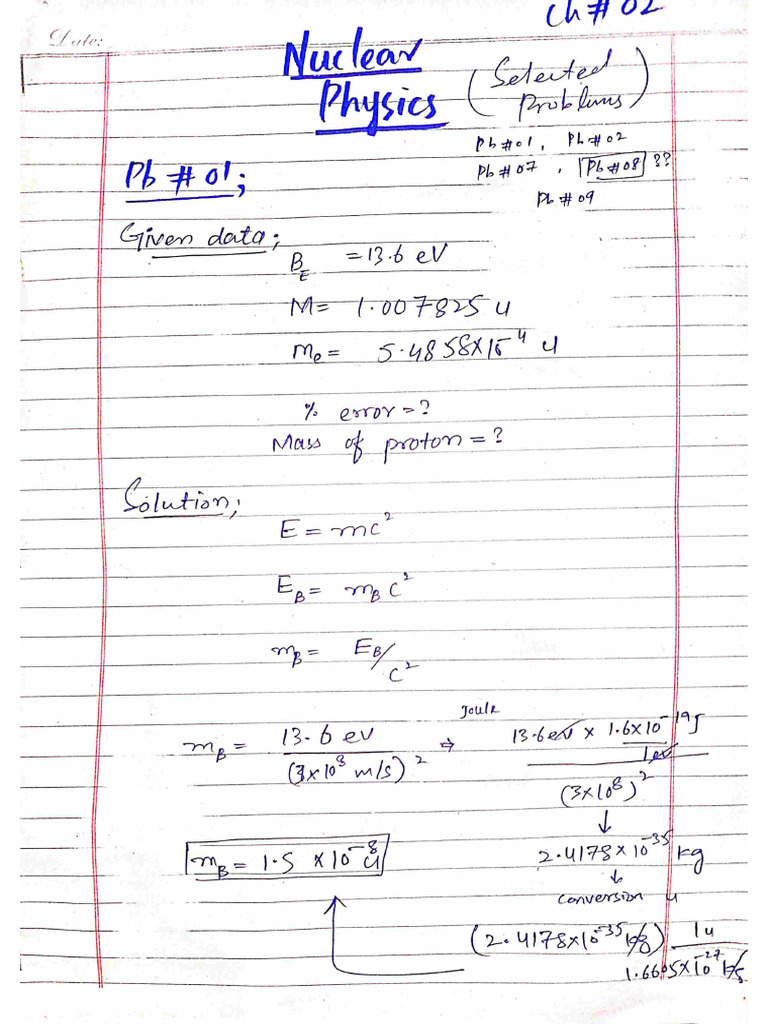 Ch # 02
Date:
Nuclear
Physics
(Selected
Problems)
Pb # 01, Pb # 02
Pb # 07, Pb # 08 ??
Pb # 09
Pb # 01;
Given data;
B_E = 13.6 eV
M = 1.007825 u
m_e = 5.4858×10⁻⁴ u
% error = ?
Mass of proton = ?
Solution;
E = mc²
E_B = m_B c²
m_B = E_B/c²
m_B = 13.6 ev/(3×10⁸ m/s)² ⇒ Joule 13.6 ev × 1.6×10⁻¹⁹J/1ev
(3×10⁸)²
↓
m_B = 1.5 ×10⁻⁸ u
2.4178×10⁻³⁵ kg
↓
conversion u
(2.4178×10⁻³⁵ kg) 1u/1.6605×10⁻²⁷ kg